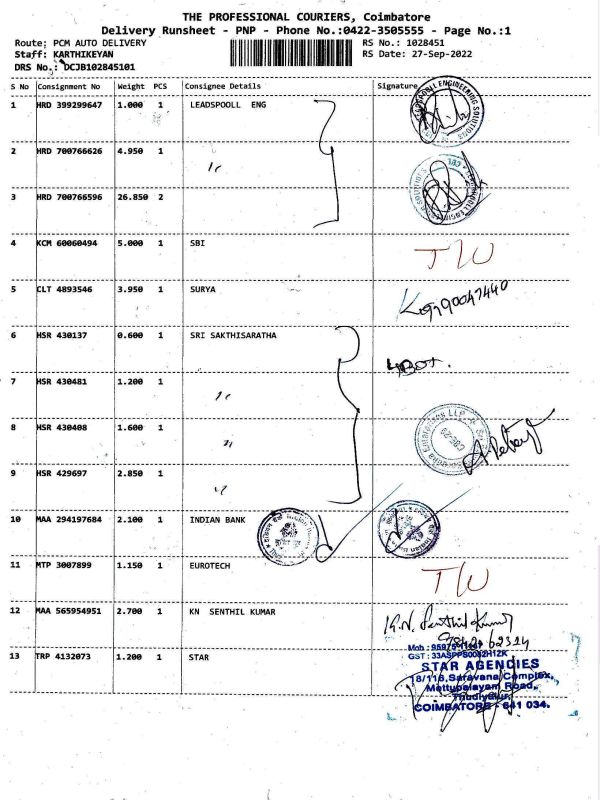 THE PROFESSIONAL COURIERS, Coimbatore
Delivery Runsheet - PNP - Phone No.:0422-3505555 - Page No.:1
Route: PCM AUTO DELIVERY RS No.: 1028451
Staff: KARTHIKEYAN RS Date: 27-Sep-2022
DRS No.: DCJB102845101
S No Consignment No Weight PCS Consignee Details Signature
1 HRD 399299647 1.000 1 LEADSPOOLL ENG
2 HRD 700766626 4.950 1 〃
3 HRD 700766596 26.850 2
4 KCM 60060494 5.000 1 SBI T/W
5 CLT 4893546 3.950 1 SURYA
6 HSR 430137 0.600 1 SRI SAKTHISARATHA 4Box.
7 HSR 430481 1.200 1 〃
8 HSR 430408 1.600 1 〃
9 HSR 429697 2.850 1 〃
10 MAA 294197684 2.100 1 INDIAN BANK
11 MTP 3007899 1.150 1 EUROTECH T/W
12 MAA 565954951 2.700 1 KN SENTHIL KUMAR K.N. Senthil Kumar
13 TRP 4132073 1.200 1 STAR
STAR AGENCIES
18/116, Saravana Complex,
Mettupalayam Road,
Thudiyalur,
COIMBATORE - 641 034.